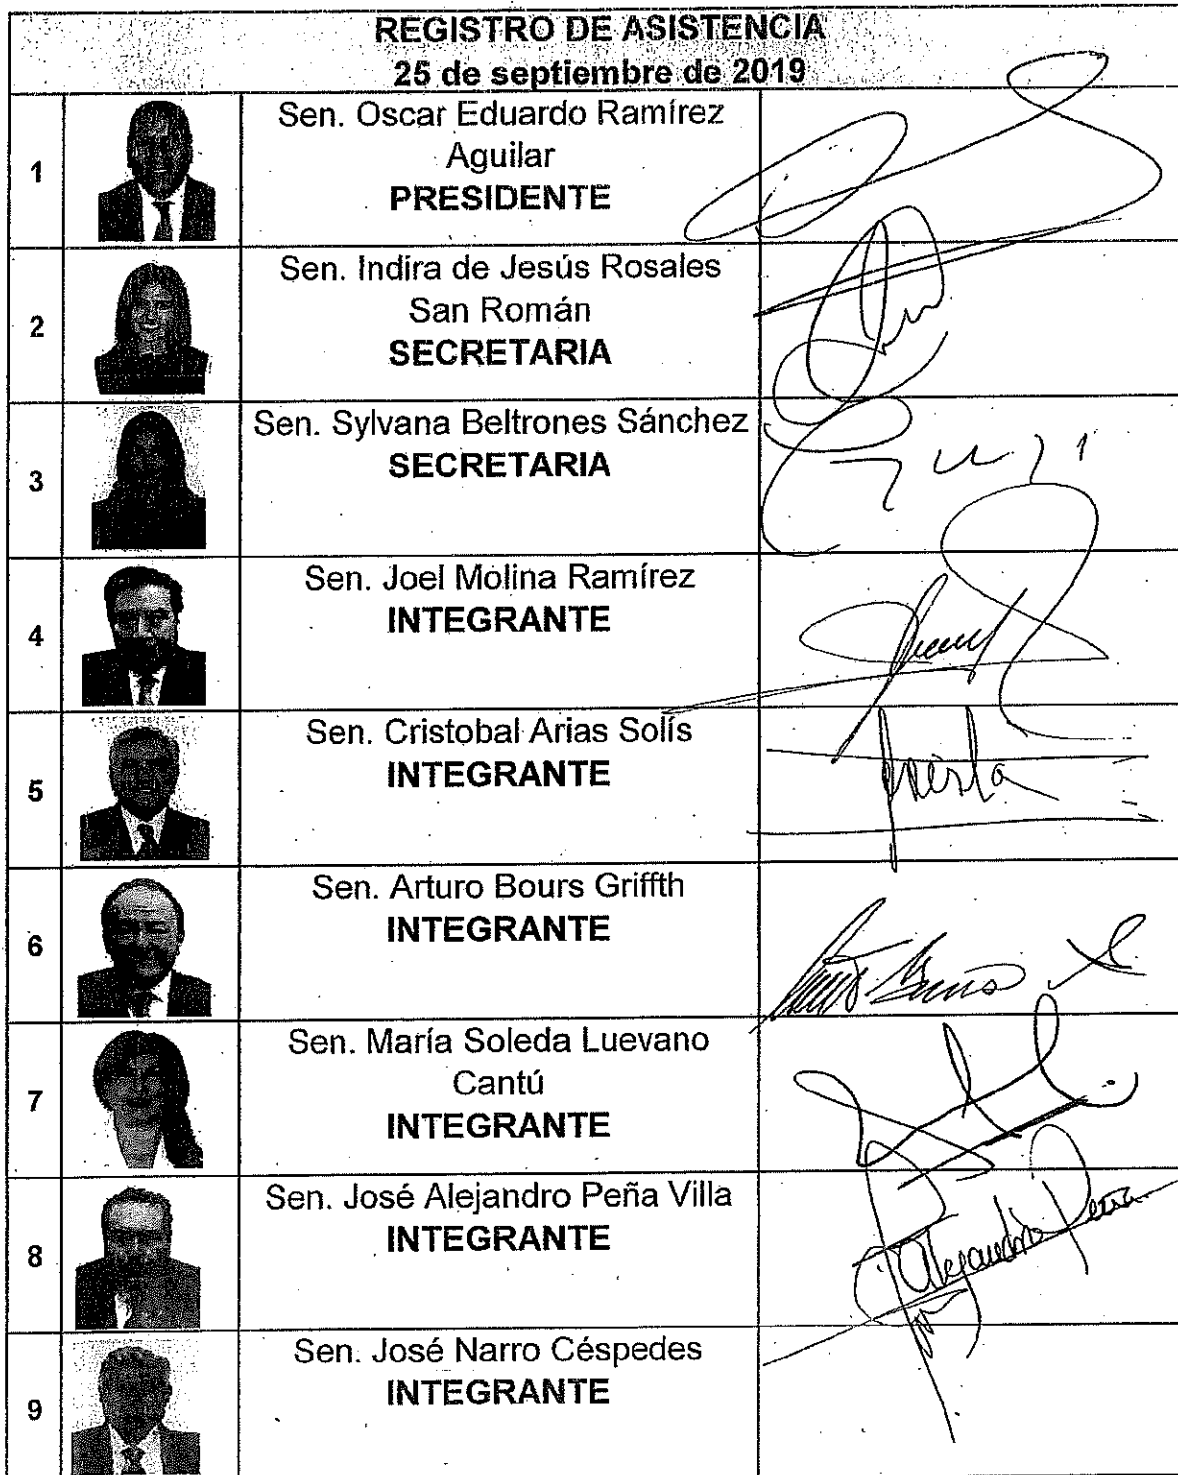 REGISTRO DE ASISTENCIA
25 de septiembre de 2019
1
Sen. Oscar Eduardo Ramírez
Aguilar
PRESIDENTE
2
Sen. Indira de Jesús Rosales
San Román
SECRETARIA
3
Sen. Sylvana Beltrones Sánchez
SECRETARIA
4
Sen. Joel Molina Ramírez
INTEGRANTE
5
Sen. Cristobal Arias Solís
INTEGRANTE
6
Sen. Arturo Bours Griffth
INTEGRANTE
7
Sen. María Soleda Luevano
Cantú
INTEGRANTE
8
Sen. José Alejandro Peña Villa
INTEGRANTE
Alejandro Peña
9
Sen. José Narro Céspedes
INTEGRANTE